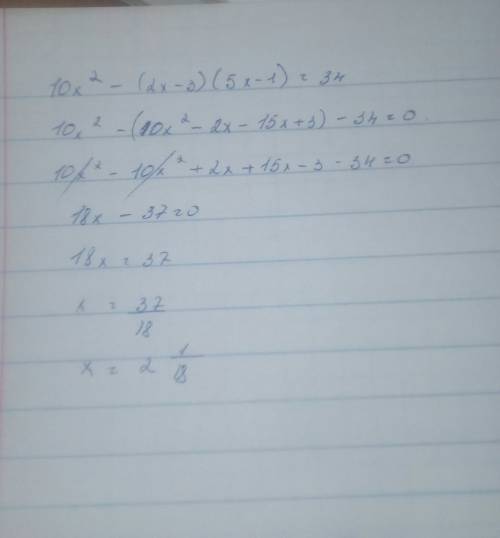 10x² - (2x-3)(5x-1) = 34
10x² - (10x² - 2x - 15x + 3) - 34 = 0
10x² - 10x² + 2x + 15x - 3 - 34 = 0
18x - 37 = 0
18x = 37
x = 37/18
x = 2 1/18